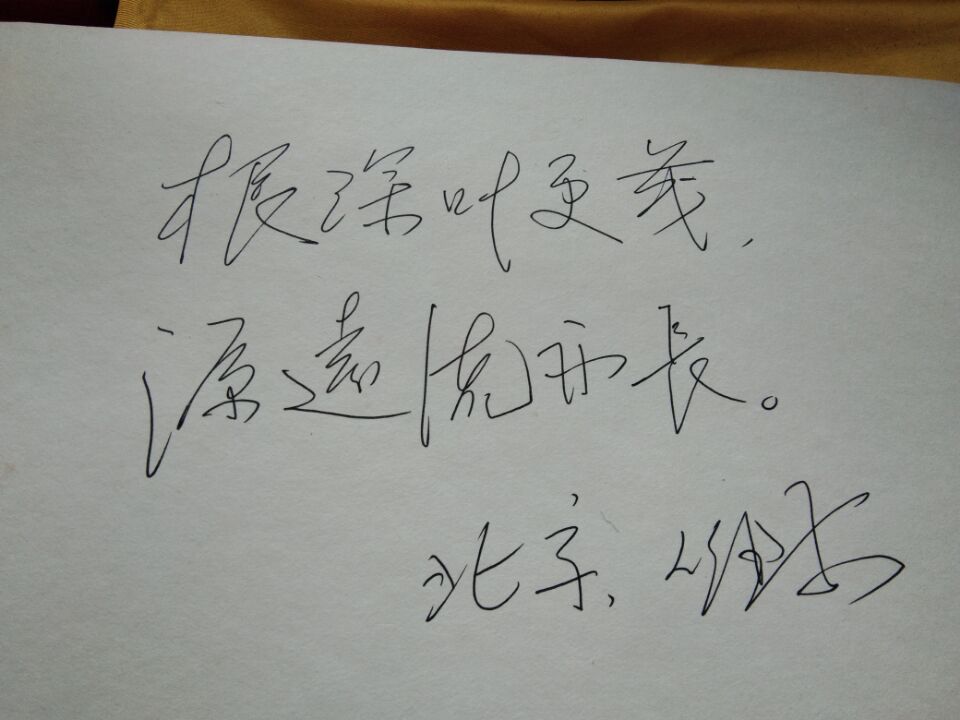 根深叶更茂，
源远流亦长。
北京，